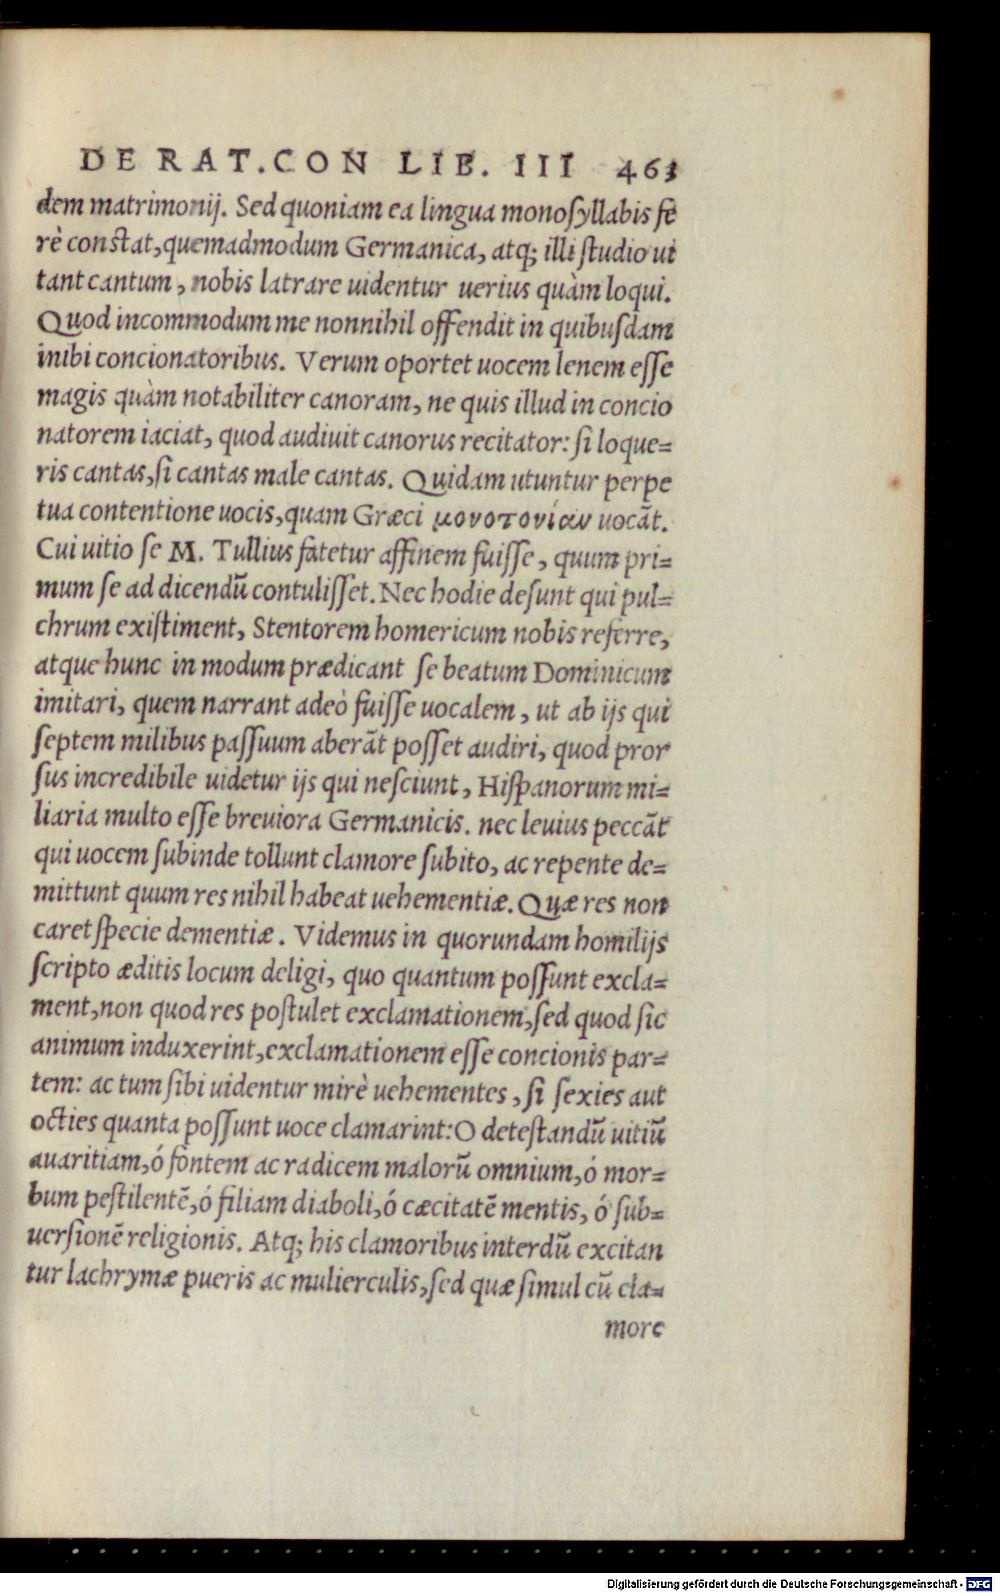 DE RAT. CON LIB. III 463
dem matrimonij. Sed quoniam ea lingua monosyllabis fe
rè constat, quemadmodum Germanica, atq; illi studio ui
tant cantum, nobis latrare uidentur uerius quàm loqui.
Quod incommodum me nonnihil offendit in quibusdam
inibi concionatoribus. Verum oportet uocem lenem esse
magis quàm notabiliter canoram, ne quis illud in concio
natorem iaciat, quod audiuit canorus recitator: si loque=
ris cantas, si cantas male cantas. Quidam utuntur perpe
tua contentione uocis, quam Græci μονοτονίαν uocãt.
Cui uitio se M. Tullius fatetur affinem fuisse, quum pri=
mum se ad dicendũ contulisset. Nec hodie desunt qui pul=
chrum existiment, Stentorem homericum nobis referre,
atque hunc in modum prædicant se beatum Dominicum
imitari, quem narrant adeò fuisse uocalem, ut ab ijs qui
septem milibus passuum aberãt posset audiri, quod pror
sus incredibile uidetur ijs qui nesciunt, Hispanorum mi=
liaria multo esse breuiora Germanicis. nec leuius peccãt
qui uocem subinde tollunt clamore subito, ac repente de=
mittunt quum res nihil habeat uehementiæ. Quæ res non
caret specie dementiæ. Videmus in quorundam homilijs
scripto æditis locum deligi, quo quantum possunt excla=
ment, non quod res postulet exclamationem, sed quod sic
animum induxerint, exclamationem esse concionis par=
tem: ac tum sibi uidentur mirè uehementes, si sexies aut
octies quanta possunt uoce clamarint: O detestandũ uitiũ
auaritiam, ó fontem ac radicem malorũ omnium, ó mor=
bum pestilentẽ, ó filiam diaboli, ó cæcitatẽ mentis, ó sub=
uersionẽ religionis. Atq; his clamoribus interdũ excitan
tur lachrymæ pueris ac mulierculis, sed quæ simul cũ cla=
more
Digitalisierung gefördert durch die Deutsche Forschungsgemeinschaft - DFG